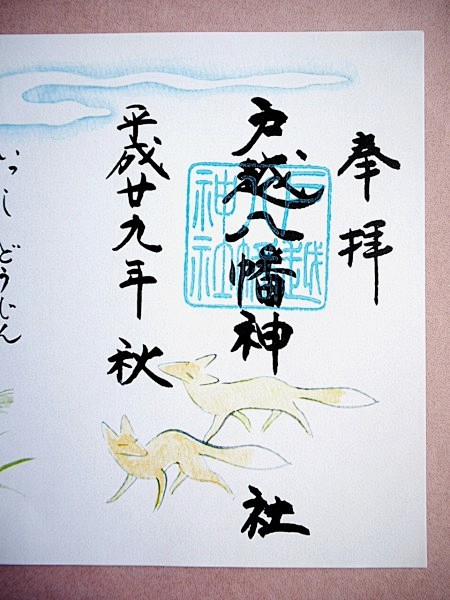 奉拝
戸越八幡神社
戸越八幡神社
平成廿九年秋
いっしどうじん